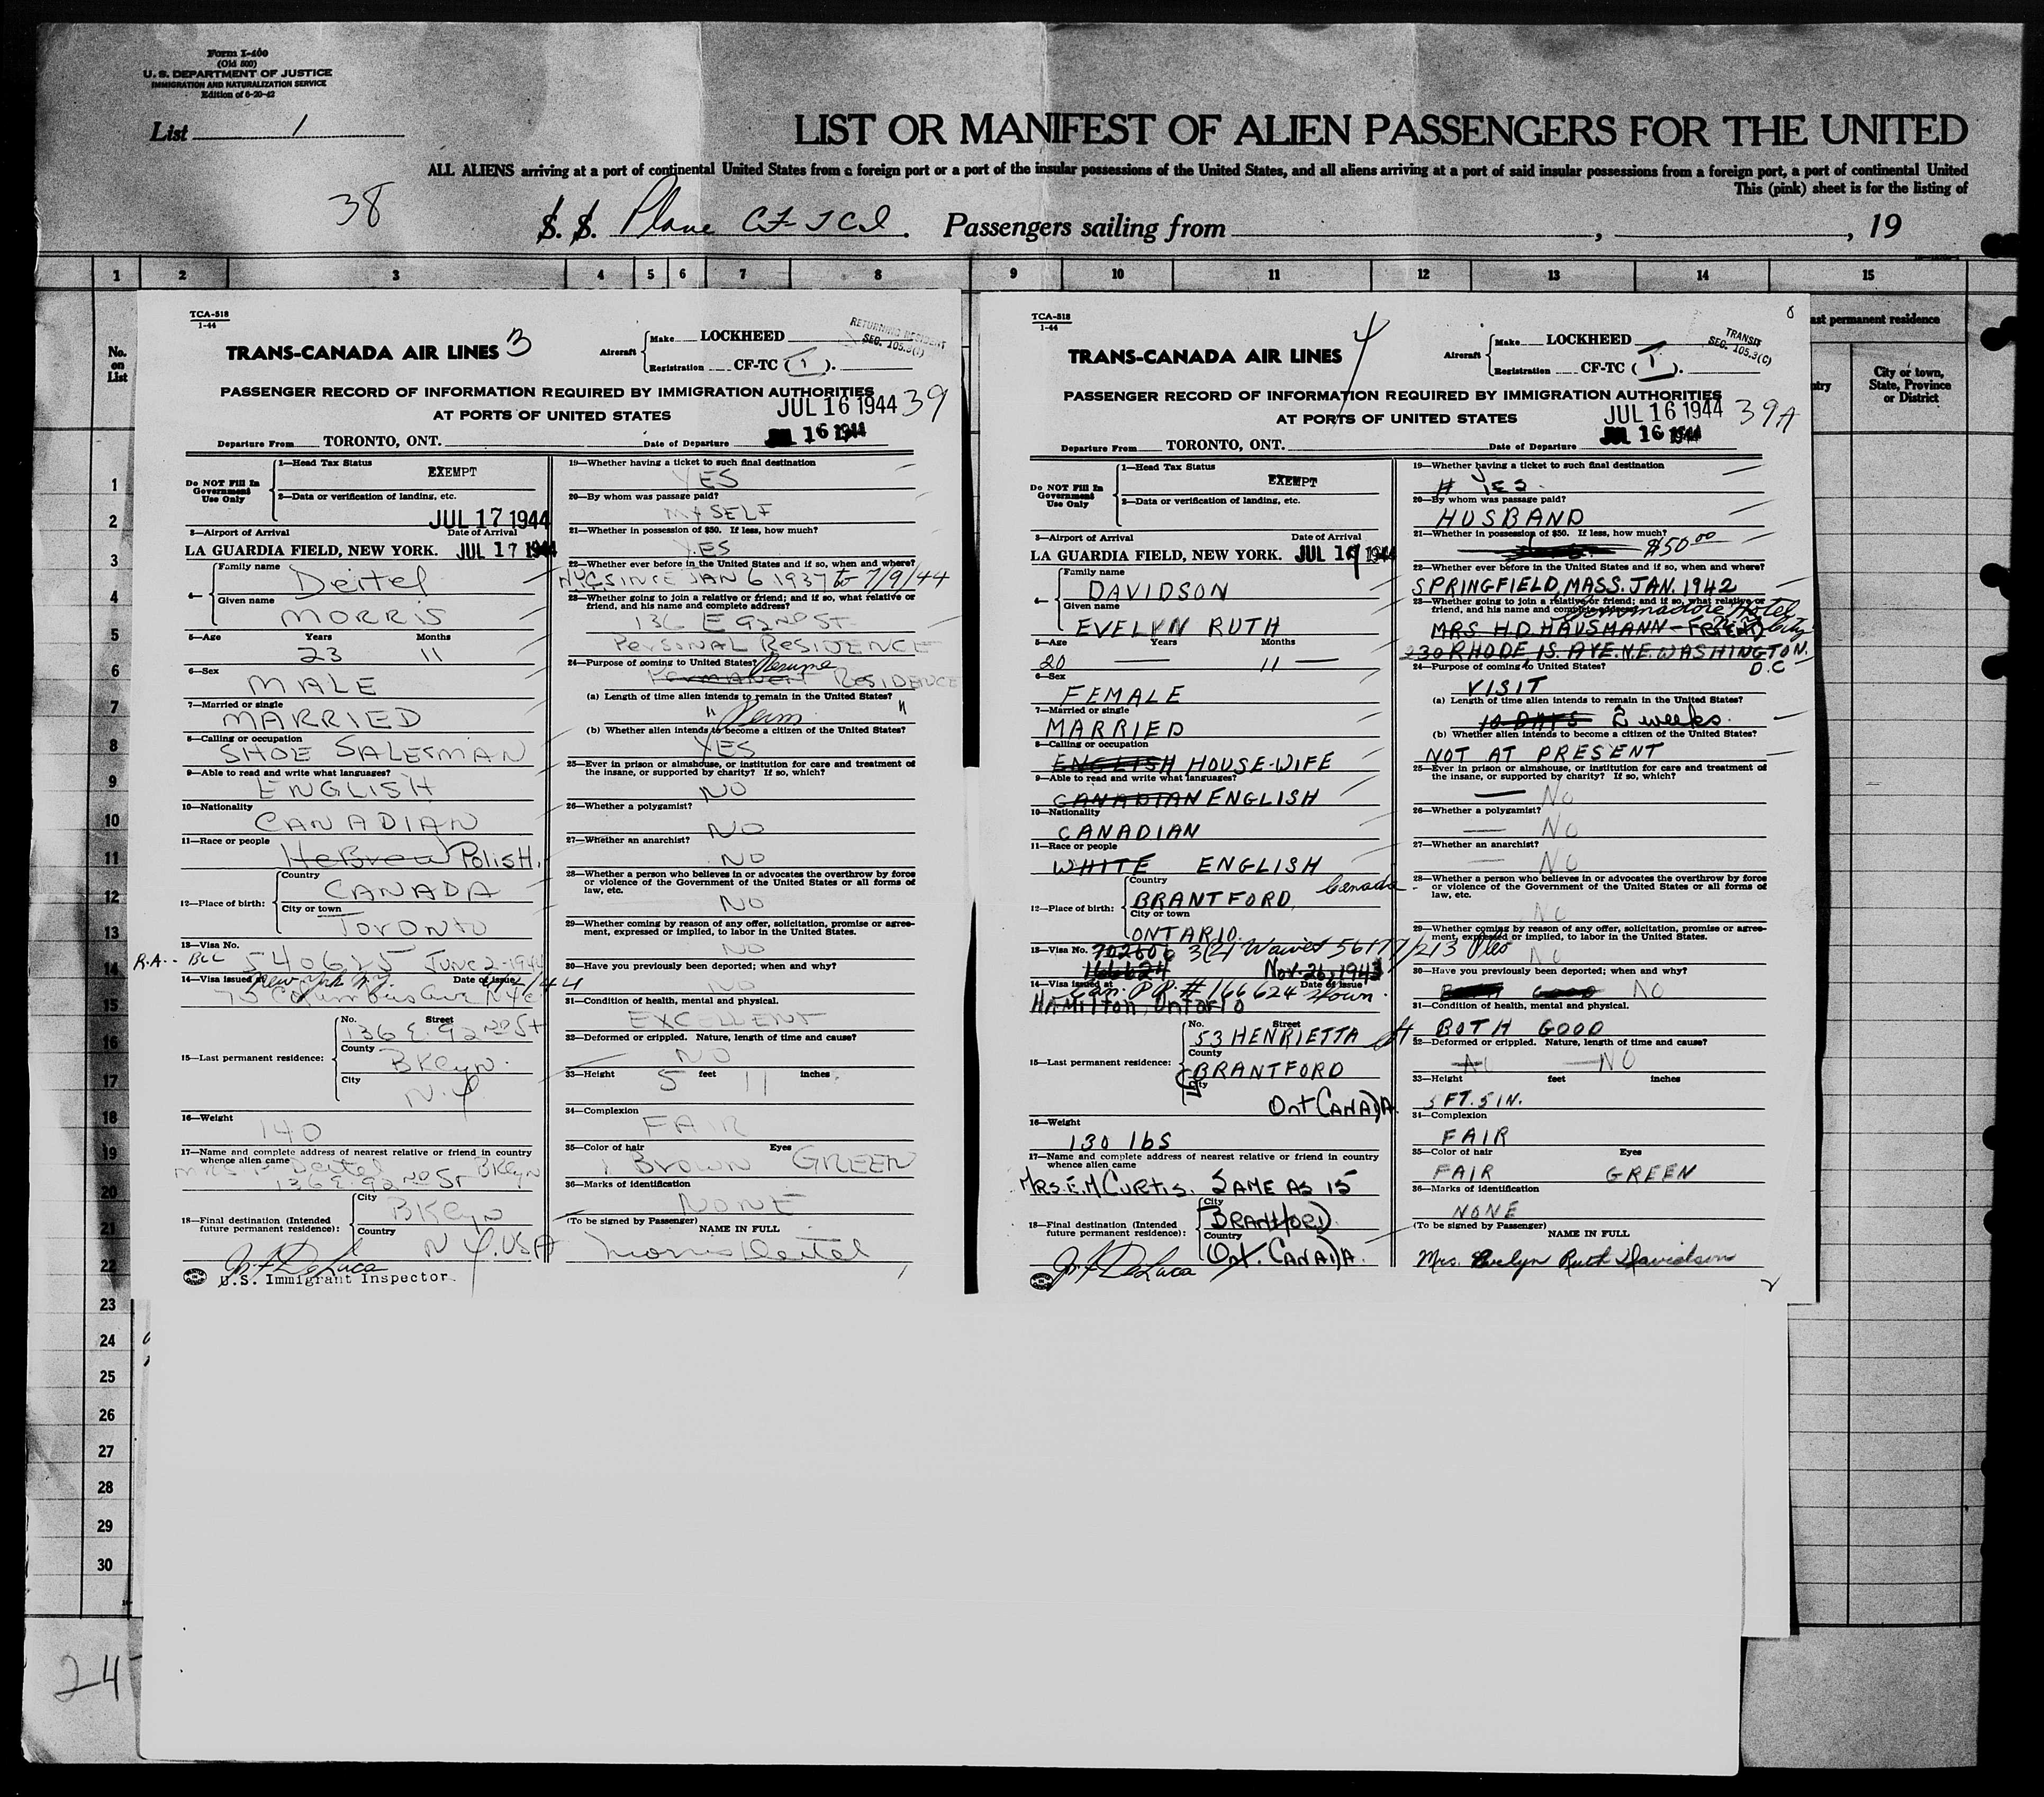 Form I-400
(Old 500)
U. S. DEPARTMENT OF JUSTICE
IMMIGRATION AND NATURALIZATION SERVICE
Edition of 6-20-42
List 1
LIST OR MANIFEST OF ALIEN PASSENGERS FOR THE UNITED
ALL ALIENS arriving at a port of continental United States from a foreign port or a port of the insular possessions of the United States, and all aliens arriving at a port of said insular possessions from a foreign port, a port of continental United
This (pink) sheet is for the listing of
38
S. S. Plane CF-TCI. Passengers sailing from , , 19
1 2 3 4 5 6 7 8 9 10 11 12 13 14 15
No. on List
ast permanent residence
City or town, State, Province or District
TCA-518
1-44
TRANS-CANADA AIR LINES 3
Aircraft Make LOCKHEED
Registration CF-TC (I).
RETURNING RESIDENT
SEC. 105.3(1)
PASSENGER RECORD OF INFORMATION REQUIRED BY IMMIGRATION AUTHORITIES
AT PORTS OF UNITED STATES
JUL 16 1944 39
Departure From TORONTO, ONT. Date of Departure JUL 16 1944
Do NOT Fill In Government Use Only
1—Head Tax Status EXEMPT
2—Data or verification of landing, etc.
JUL 17 1944
3—Airport of Arrival Date of Arrival
LA GUARDIA FIELD, NEW YORK. JUL 17 1944
4— Family name Deitel
Given name MORRIS
5—Age Years Months
23 11
6—Sex
MALE
7—Married or single
MARRIED
8—Calling or occupation
SHOE SALESMAN
9—Able to read and write what languages?
ENGLISH
10—Nationality
CANADIAN
11—Race or people
HeBrew PolisH.
12—Place of birth: Country CANADA
City or town
TORONTO
13—Visa No.
R.A. - BLL 540625 JUNE 2-1944
14—Visa issued at New York N.Y. Date of issue
70 Columbus Ave NYC
15—Last permanent residence: No. Street
136 E. 92ND St
County
BKlyn.
City
N.Y.
16—Weight
140
17—Name and complete address of nearest relative or friend in country whence alien came
MRS Deitel
136 E. 92ND St BKlyn
18—Final destination (Intended future permanent residence): City
BKlyn
Country
N.Y. USA
U.S. Immigrant Inspector
19—Whether having a ticket to such final destination
YES
20—By whom was passage paid?
MYSELF
21—Whether in possession of $50. If less, how much?
YES
22—Whether ever before in the United States and if so, when and where?
NYC. SINCE JAN 6 1937 to 7/9/44
23—Whether going to join a relative or friend; and if so, what relative or friend, and his name and complete address?
136 E 92ND St
PERSONAL RESIDENCE
24—Purpose of coming to United States? Resume
PERMANENT RESIDENCE
(a) Length of time alien intends to remain in the United States?
" Perm "
(b) Whether alien intends to become a citizen of the United States?
YES
25—Ever in prison or almshouse, or institution for care and treatment of the insane, or supported by charity? If so, which?
NO
26—Whether a polygamist?
NO
27—Whether an anarchist?
NO
28—Whether a person who believes in or advocates the overthrow by force or violence of the Government of the United States or all forms of law, etc.
NO
29—Whether coming by reason of any offer, solicitation, promise or agreement, expressed or implied, to labor in the United States.
NO
30—Have you previously been deported; when and why?
NO
31—Condition of health, mental and physical.
EXCELLENT
32—Deformed or crippled. Nature, length of time and cause?
NO
33—Height 5 feet 11 inches
34—Complexion
FAIR
35—Color of hair Eyes
BROWN GREEN
36—Marks of identification
NONE
(To be signed by Passenger) NAME IN FULL
Morris Deitel
TCA-518
1-44
TRANS-CANADA AIR LINES 4
Aircraft Make LOCKHEED
Registration CF-TC (I).
TRANSIT
SEC. 105.3(C)
PASSENGER RECORD OF INFORMATION REQUIRED BY IMMIGRATION AUTHORITIES
AT PORTS OF UNITED STATES
JUL 16 1944 39A
Departure From TORONTO, ONT. Date of Departure JUL 16 1944
Do NOT Fill In Government Use Only
1—Head Tax Status EXEMPT
2—Data or verification of landing, etc.
3—Airport of Arrival Date of Arrival
LA GUARDIA FIELD, NEW YORK. JUL 17 1944
4— Family name DAVIDSON
Given name
EVELYN RUTH
5—Age Years Months
20 — 11 —
6—Sex
FEMALE
7—Married or single
MARRIED
8—Calling or occupation
ENGLISH HOUSE-WIFE
9—Able to read and write what languages?
CANADIAN ENGLISH
10—Nationality
CANADIAN
11—Race or people
WHITE ENGLISH
12—Place of birth: Country
BRANTFORD, Canada
City or town
ONTARIO.
13—Visa No. 702606 3(2) Waived 56177/213
166624 Nov. 26, 1943
14—Visa issued at Date of issue
Can. P.P. # 166624 shown.
HAMilton, OntArio
15—Last permanent residence: No. Street
53 HENRIETTA St
County
BRANTFORD
City
Ont CANADA.
16—Weight
130 lbs
17—Name and complete address of nearest relative or friend in country whence alien came
MRS. E.M CURTIS. SAME AS 15
18—Final destination (Intended future permanent residence): City
BRANTFORD.
Country
Ont. CANADA.
19—Whether having a ticket to such final destination
YES.
20—By whom was passage paid?
HUSBAND
21—Whether in possession of $50. If less, how much?
$50 00
22—Whether ever before in the United States and if so, when and where?
SPRINGFIELD, MASS. JAN. 1942
23—Whether going to join a relative or friend; and if so, what relative or friend, and his name and complete address?
Commodore Hotel
N.Y. City
MRS H.D. HAUSMANN - FRIEND
230 RHODE IS. AVE. N.E. WASHINGTON.
D.C
24—Purpose of coming to United States?
VISIT
(a) Length of time alien intends to remain in the United States?
10 DAYS 2 weeks.
(b) Whether alien intends to become a citizen of the United States?
NOT AT PRESENT
25—Ever in prison or almshouse, or institution for care and treatment of the insane, or supported by charity? If so, which?
— No
26—Whether a polygamist?
— No
27—Whether an anarchist?
— No
28—Whether a person who believes in or advocates the overthrow by force or violence of the Government of the United States or all forms of law, etc.
No
29—Whether coming by reason of any offer, solicitation, promise or agreement, expressed or implied, to labor in the United States.
No
30—Have you previously been deported; when and why?
BOTH GOOD NO
31—Condition of health, mental and physical.
BOTH GOOD
32—Deformed or crippled. Nature, length of time and cause?
—NO
33—Height feet inches
5 FT. 5 IN.
34—Complexion
FAIR
35—Color of hair Eyes
FAIR GREEN
36—Marks of identification
NONE
(To be signed by Passenger) NAME IN FULL
Mrs. Evelyn Ruth Davidson
1
2
3
4
5
6
7
8
9
10
11
12
13
14
15
16
17
18
19
20
21
22
23
24
25
26
27
28
29
30
24